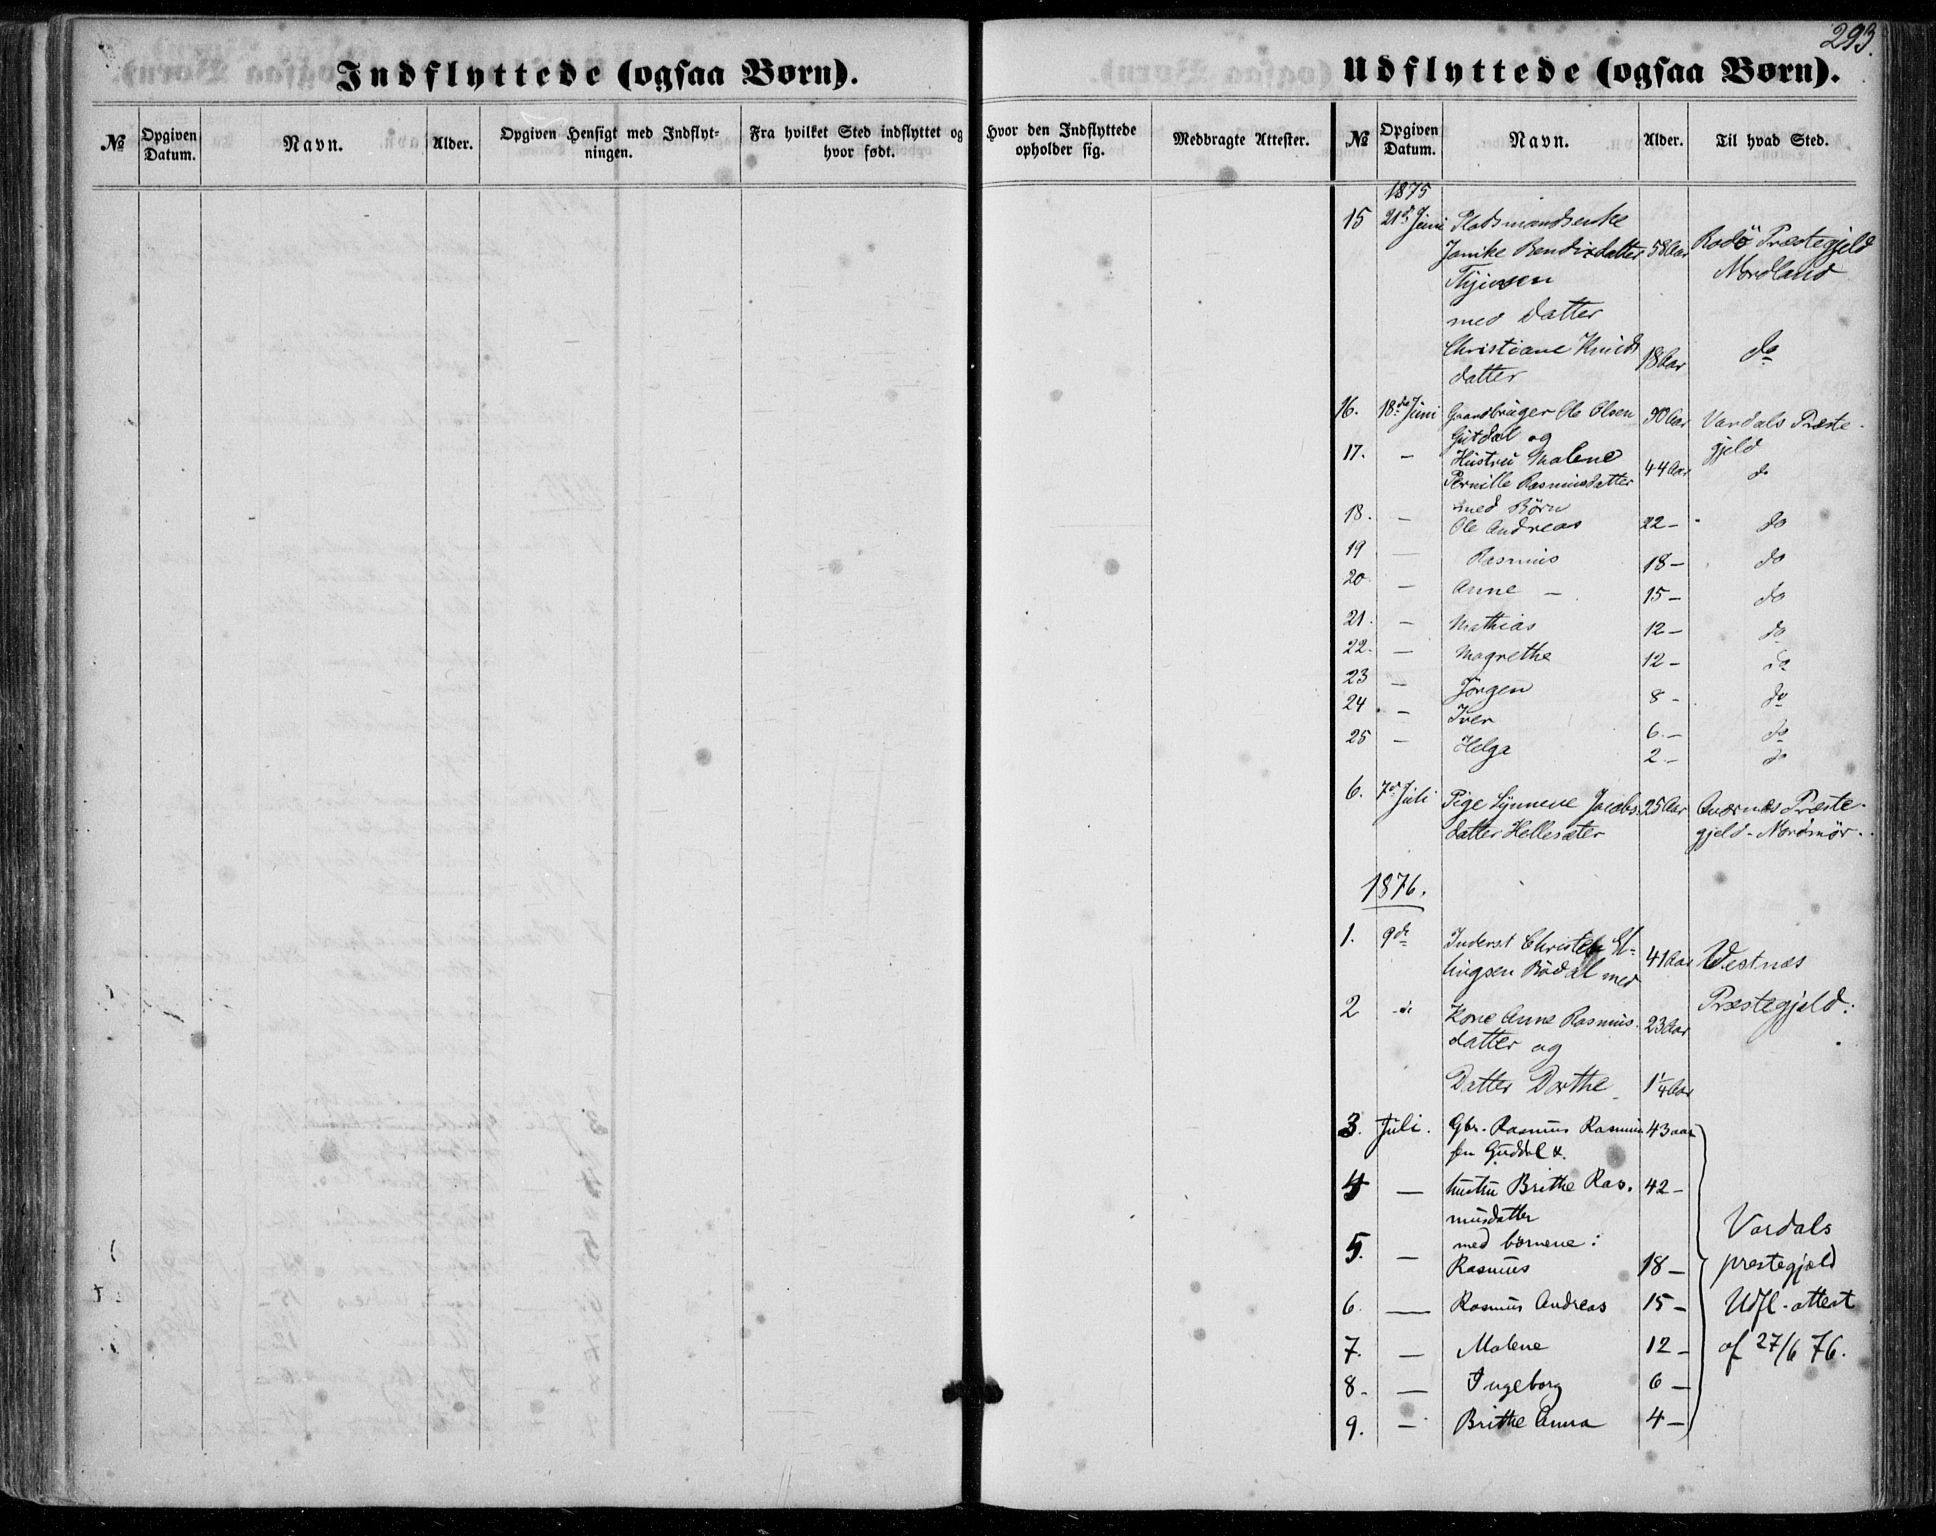 293.
Indflyttede (ogsaa Børn).
Udflyttede (ogsaa Børn).
№ Opgiven Datum. Navn. Alder. Opgiven Hensigt med Indflyt-ningen. Fra hvilket Sted indflyttet og hvor født. Hvor den Indflyttede opholder sig. Medbragte Attester. № Opgiven Datum. Navn. Alder. Til hvad Sted.
1875
15 21de Juni Pladsmandsenke
Janike Bendixdatter 58 Aar Rodö Præstegjeld
Nordland
med Datter
Christiane Knuds 18 Aar do
datter
16. 18de Juni Gaardbruger Ole Olsen 50 Aar Vardals Præste-
Gutdal og gjeld
17. - Hustru Malene 44 Aar do
Pernille Rasmusdatter
med Børn
18. - Ole Andreas 22 - do
19 - Rasmus 18 - do
20 - Anne - 15 - do
21. - Mathias 12 - do
22. - Magrethe 12 - do
23 - Jörgen 8 - do
24 - Iver 6 - do
25 - Helga 2 - do
6. 7de Juli Pige Synneve Jacobs- 25 Aar Qværnæs Præste-
datter Hellesæter gjeld - Nordmør.
1876.
1. 9de Inderst Christen El- 41 Aar Vestnæs
lingsen Bödal med
2 Kone Anne Rasmus- 23 Aar Præstegjeld.
datter og
Datter Dorthe 1 1/4 Aar
3. Juli. Gbr. Rasmus Rasmus 43 aar
sen Guddal &
4 - hustru Brithe Ras- 42 -
musdatter
med børnene:
5. - Rasmus 18 -
Vardals
prestegjeld
6. - Rasmus Andreas 15 - Udfl-attest
7. - Malene 12 - af 27/6 76.
8. - Ingeborg 6 -
9. - Brithe Anna 4 -